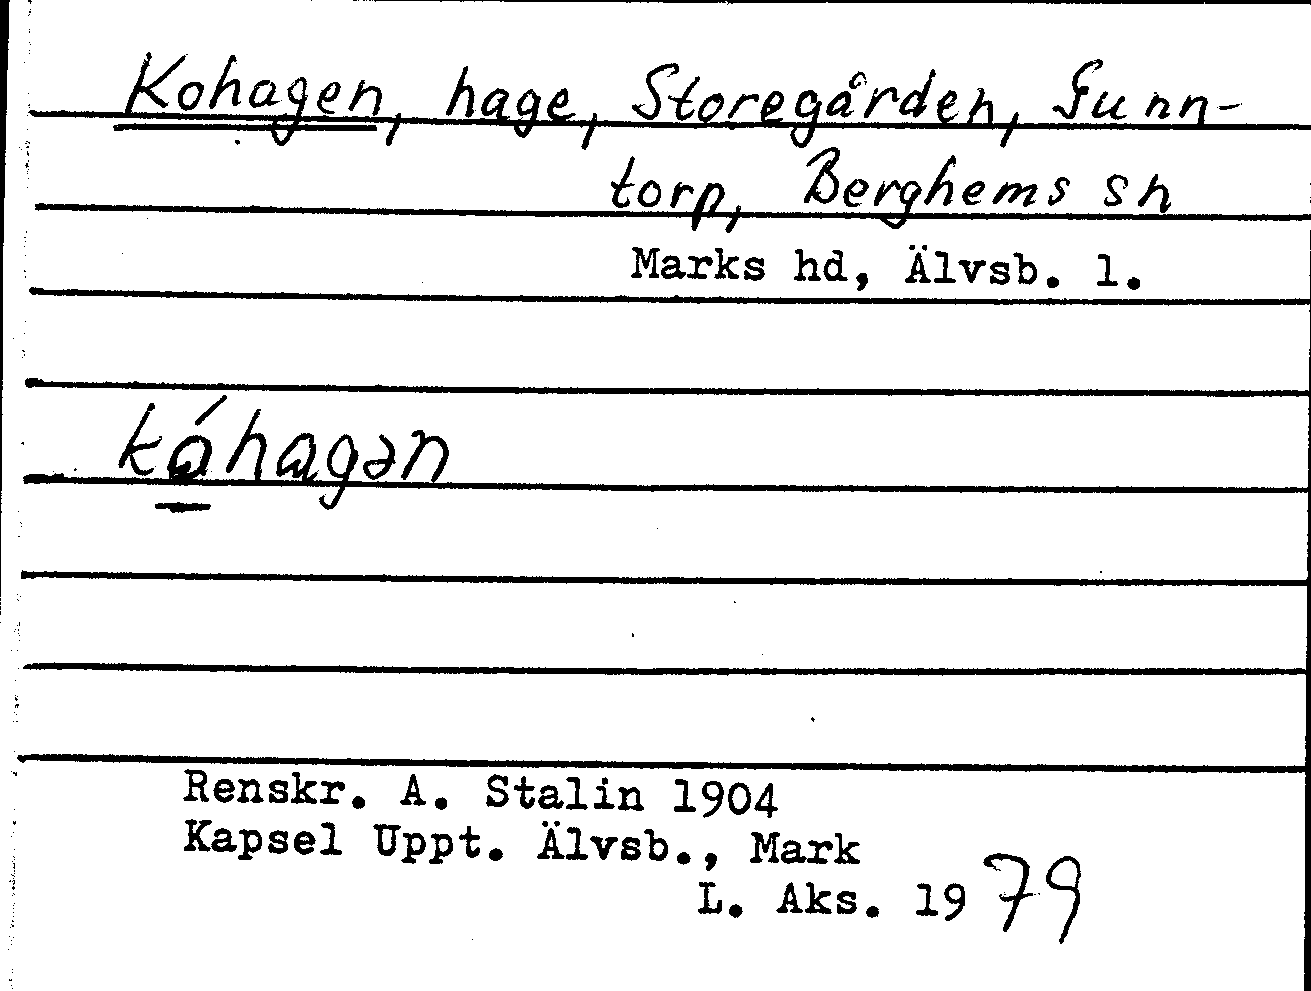 Kohagen, hage, Storegården, Gunn-
torp, Berghems sn
Marks hd, Älvsb. l.
kóhagən
Renskr. A. Stalin 1904
Kapsel Uppt. Älvsb., Mark
L. Aks. 1979